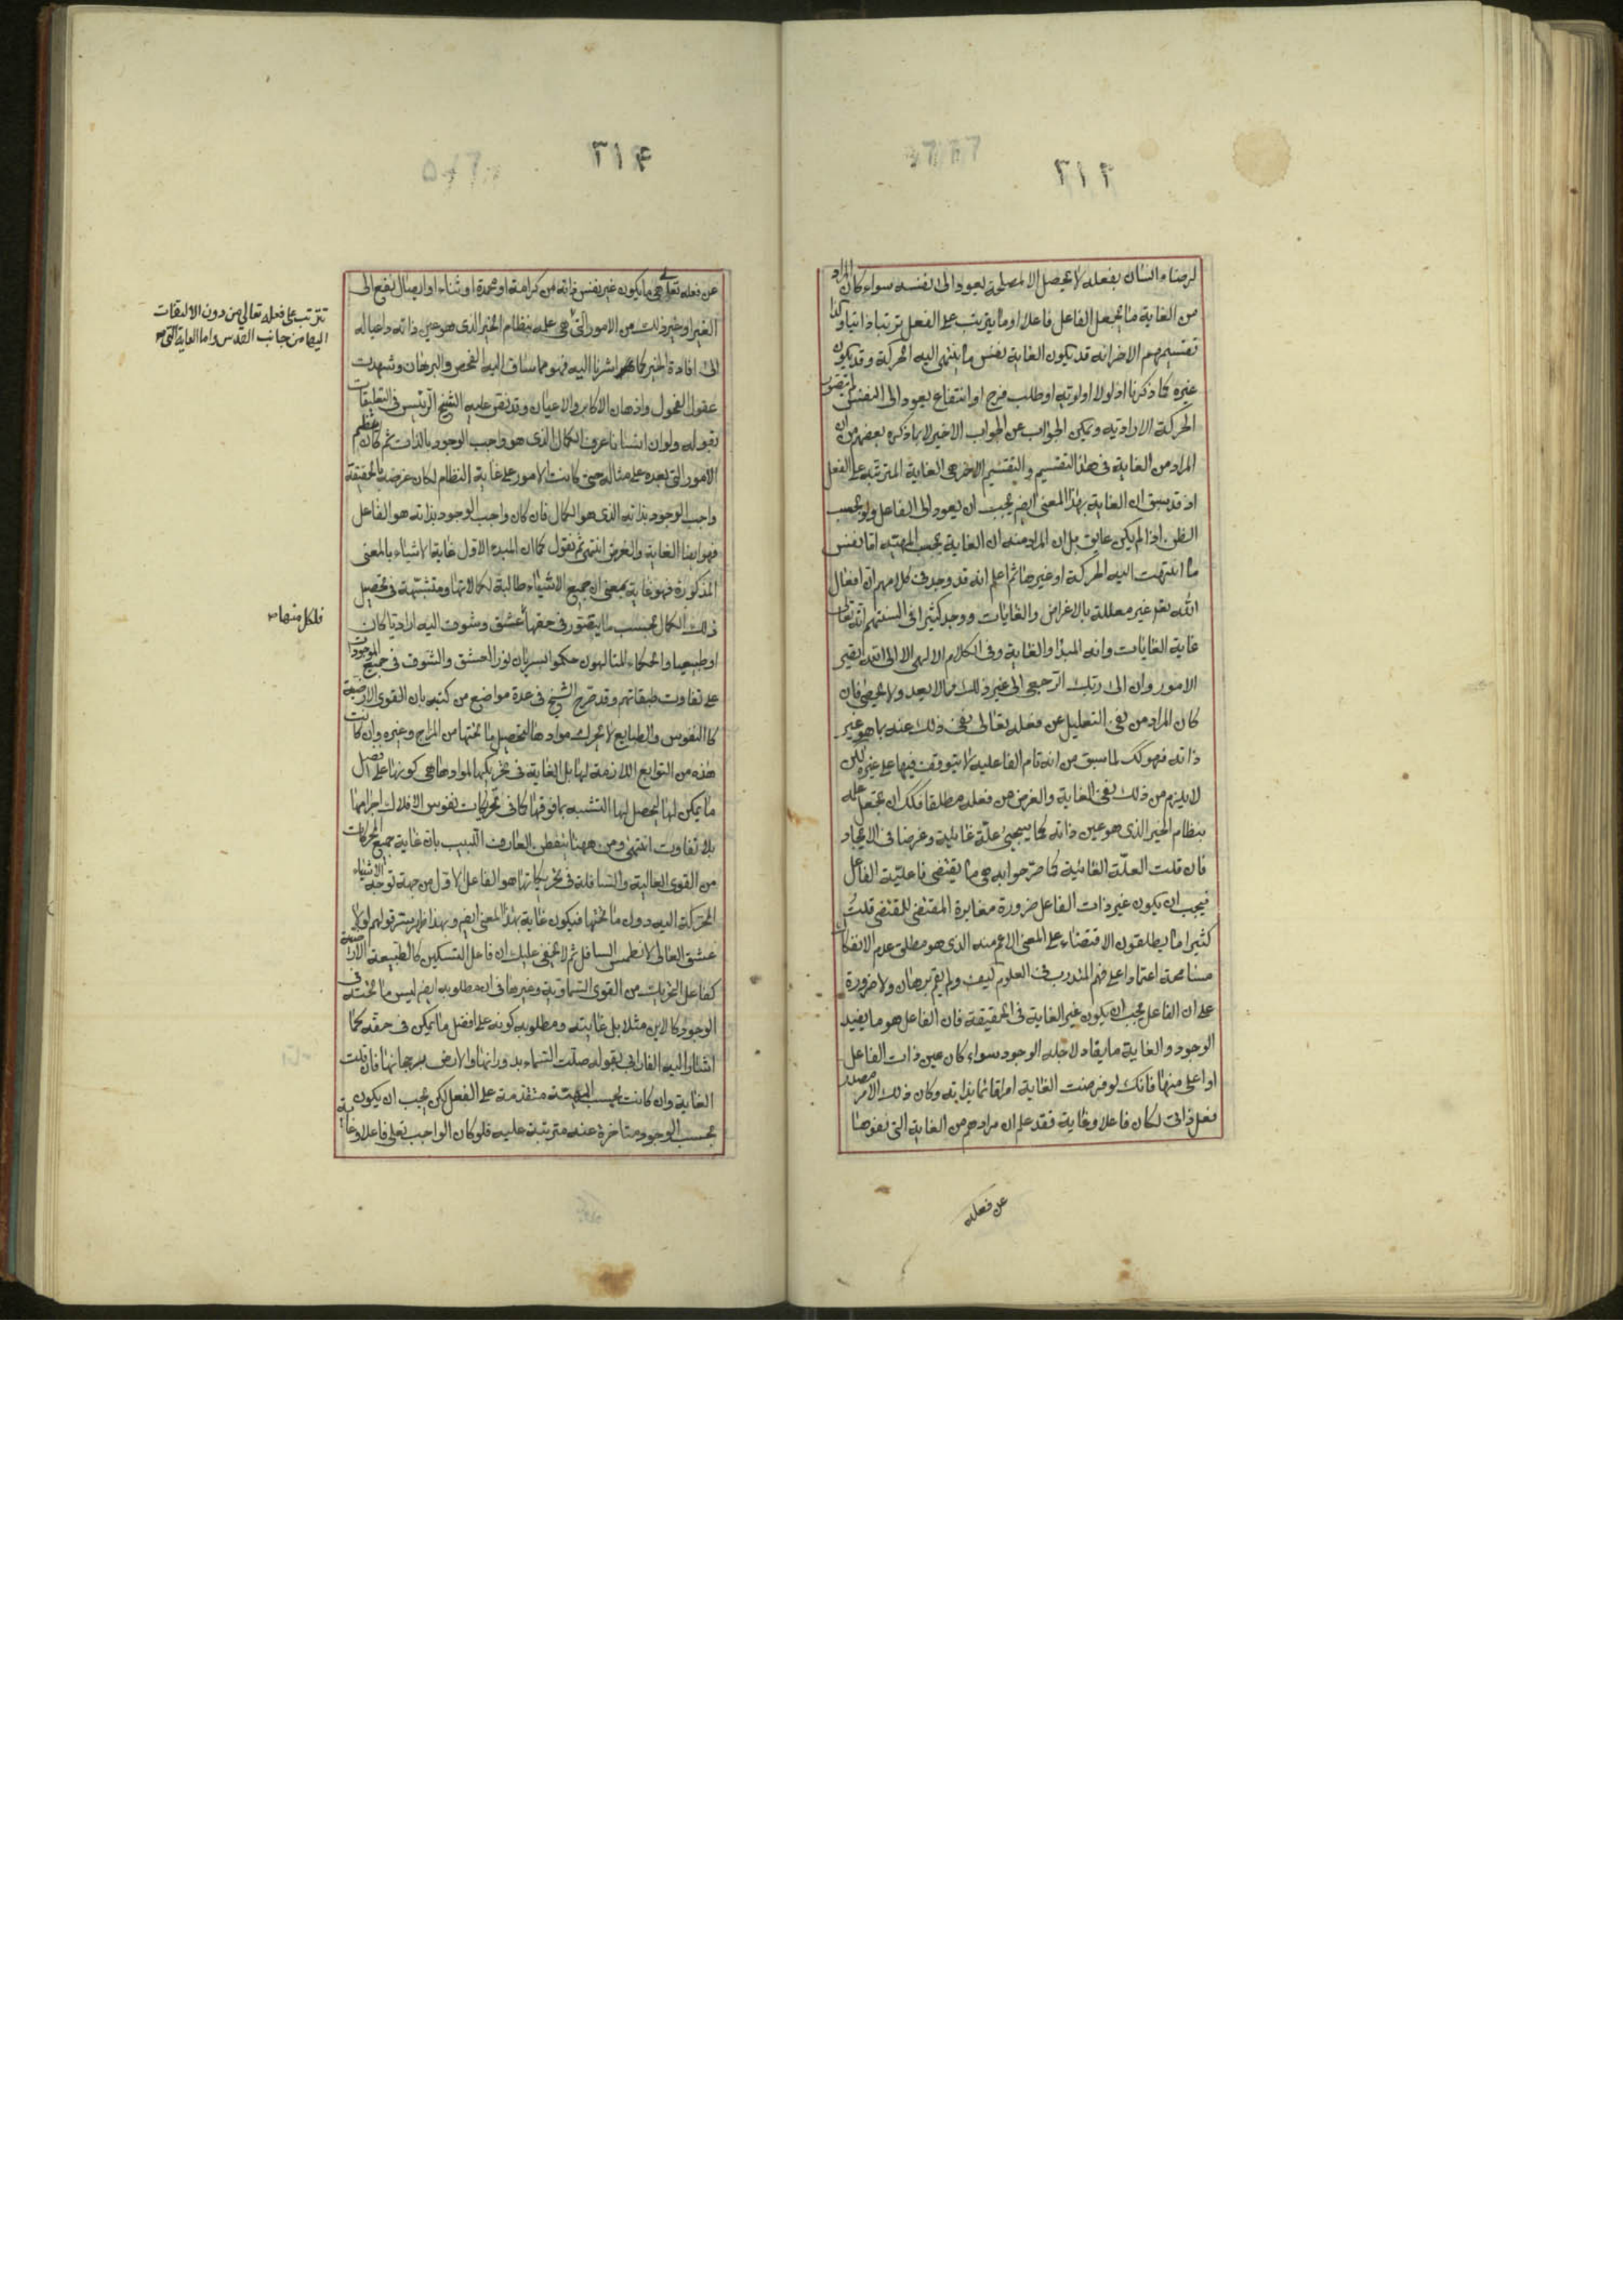 ٣١٣
لرضاء انسان بفعله لا يحصل الا لمصلحة يعود الى نفسه سواء كان المراد
من الغاية ما يجعل الفاعل فاعلا او ما يترتب على الفعل ترتبا ذاتيا وكذا
تقسيمهم الاخر انه قد يكون الغاية نفس ما ينتهى اليه الحركة وقد يكون
غيره كما ذكرنا اذ لولا اولوية او طلب فرح او انتفاع يعود الى النفس لم يتصور
الحركة الارادية ويمكن الجواب عن الجواب الاخير لا بما ذكره بعضهم من ان
المراد من الغاية فى هذا التقسيم والتقسيم الاخر هى الغاية المترتبة على الفعل
اذ قد سبق ان الغاية بهذا المعنى ايضا يجب ان يعود الى الفاعل ولو بحسب
الظن اذا لم يكن عايق بل ان المراد منه ان الغاية بحسب المهية اما نفس
ما انتهت اليه الحركة او غيرها ثم اعلم انه قد وجد فى كلامهم ان افعال
الله تعم غير معللة بالاغراض والغايات ووجد كثيرا فى السنتهم انه تعالى
غاية الغايات وانه المبدأ والغاية وفى الكلام الالهى الا الى الله تصير
الامور وان الى ربك الرجعى الى غير ذلك مما لا يعد ولا يحصى فان
كان المراد من نفى التعليل عن فعله تعالى نفى ذلك عنه بما هو غير
ذاته فهو كك لما سبق من انه تام الفاعلية لا يتوقف فيها على غيره لكن
لا يلزم من ذلك نفى الغاية والغرض من فعله مطلقا فلك ان تجعل علمه
بنظام الخير الذى هو عين ذاته كما سيجيئ علّة غائية وغرضا فى الايجاد
فان قلت العلّة الغائية كما صرّحوا به هى ما يقتضى فاعليّة الفاعل
فيجب ان يكون غير ذات الفاعل ضرورة مغايرة المقتضى للمقتضى قلتُ
كثيرا ما يطلقون الاقتضاء على المعنى الاعم منه الذى هو مطلق عدم الانفكاك
مسامحة اعتمادا على فهم المتدرب فى العلوم كيف ولم يقم برهان ولا ضرورة
على ان الفاعل يجب ان يكون غير الغاية فى الحقيقة فان الفاعل هو ما يفيد
الوجود والغاية ما يفاد لاجله الوجود سواء كان عين ذات الفاعل
او اعلى منها فانك لو فرضت الغاية امرا قائما بذاته وكان ذلك الامر مصدر
فعل ذاتى لكان فاعلا وغاية فقد علم ان مرادهم من الغاية التى نفوها
عن فعله
٣١٤
عن فعله تعالى هى ما يكون غير نفس ذاته من كرامة او محمدة او ثناء او ايصال نفع الى
الغير او غير ذلك من الامور التى هى علمه بنظام الخير الذى هو عين ذاته داعيا له
الى افادة الخير كما اشرنا اليه فهو مما ساق اليه الفحص والبرهان وشهدت
عقول الفحول واذهان الاكابر والاعيان وقد نص عليه الشيخ الرئيس فى التعليقات
بقوله ولو ان انسانا عرف الكمال الذى هو واجب الوجود بالذات ثم كان ينظم
الامور التى بعده على مثاله حتى كانت الامور على غاية النظام لكان غرضه بالحقيقة
واجب الوجود بذاته الذى هو الكمال فان كان واجب الوجود بذاته هو الفاعل
فهو ايضا الغاية والغرض انتهى ثم نقول كما ان المبدء الاول غاية الاشياء بالمعنى
المذكورة فهو غاية بمعنى ان جميع الاشياء طالبة لكمالاتها ومتشبّهة فى تحصيل
ذلك الكمال بحسب ما يتصور فى حقها عشق وشوق اليه اراديا كان
او طبيعيا والحكماء المتالهون حكموا بسريان نور العشق والشوق فى جميع الموجودات
على تفاوت طبقاتهم وقد صرح الشيخ فى عدة مواضع من كتبه بان القوى الارضية
كالنفوس والطبايع لا تحرك موادها لتحصيل ما تحتها من المزاج وغيره وان كانت
هذه من التوابع اللازمة لها بل الغاية فى تحريكها لموادها هى كونها على افضل
ما يمكن لها ليحصل لها التشبه بما فوقها كما فى تحريكات نفوس الافلاك اجرامها
بلا تفاوت انتهى ومن ههنا يتفطن العارف اللبيب بان غاية جميع المحركات
من القوى العالية والسافلة فى تحريكاتها هو الفاعل الاول من جهة توجه الاشياء
المحركة اليه دون ما تحتها فيكون غاية بهذا المعنى ايضا وبهذا ظهر سر قولهم لولا
عشق العالى لانطمس السافل ثم لا يخفى عليك ان فاعل التسكين كالطبيعة الارضية
كفاعل التحريك من القوى السماوية وغيرها فى ان مطلوبه ايضا ليس ما تحته فى
الوجود كالاين مثلا بل غايته ومطلوبه كونه على افضل ما يمكن فى حقه كما
اشار اليه الفارابى بقوله صلّت السماء بدورانها والارض برجحانها فان قلت
الغاية وان كانت بحسب المهية متقدمة على الفعل لكن يجب ان يكون
بحسب الوجود متاخرة عنه مترتبة عليه فلو كان الواجب تعلى فاعلا وغاية
تترتب على فعله تعالى من دون الالتفات
اليها من جانب القدس واما الغاية التى
فلكل منها